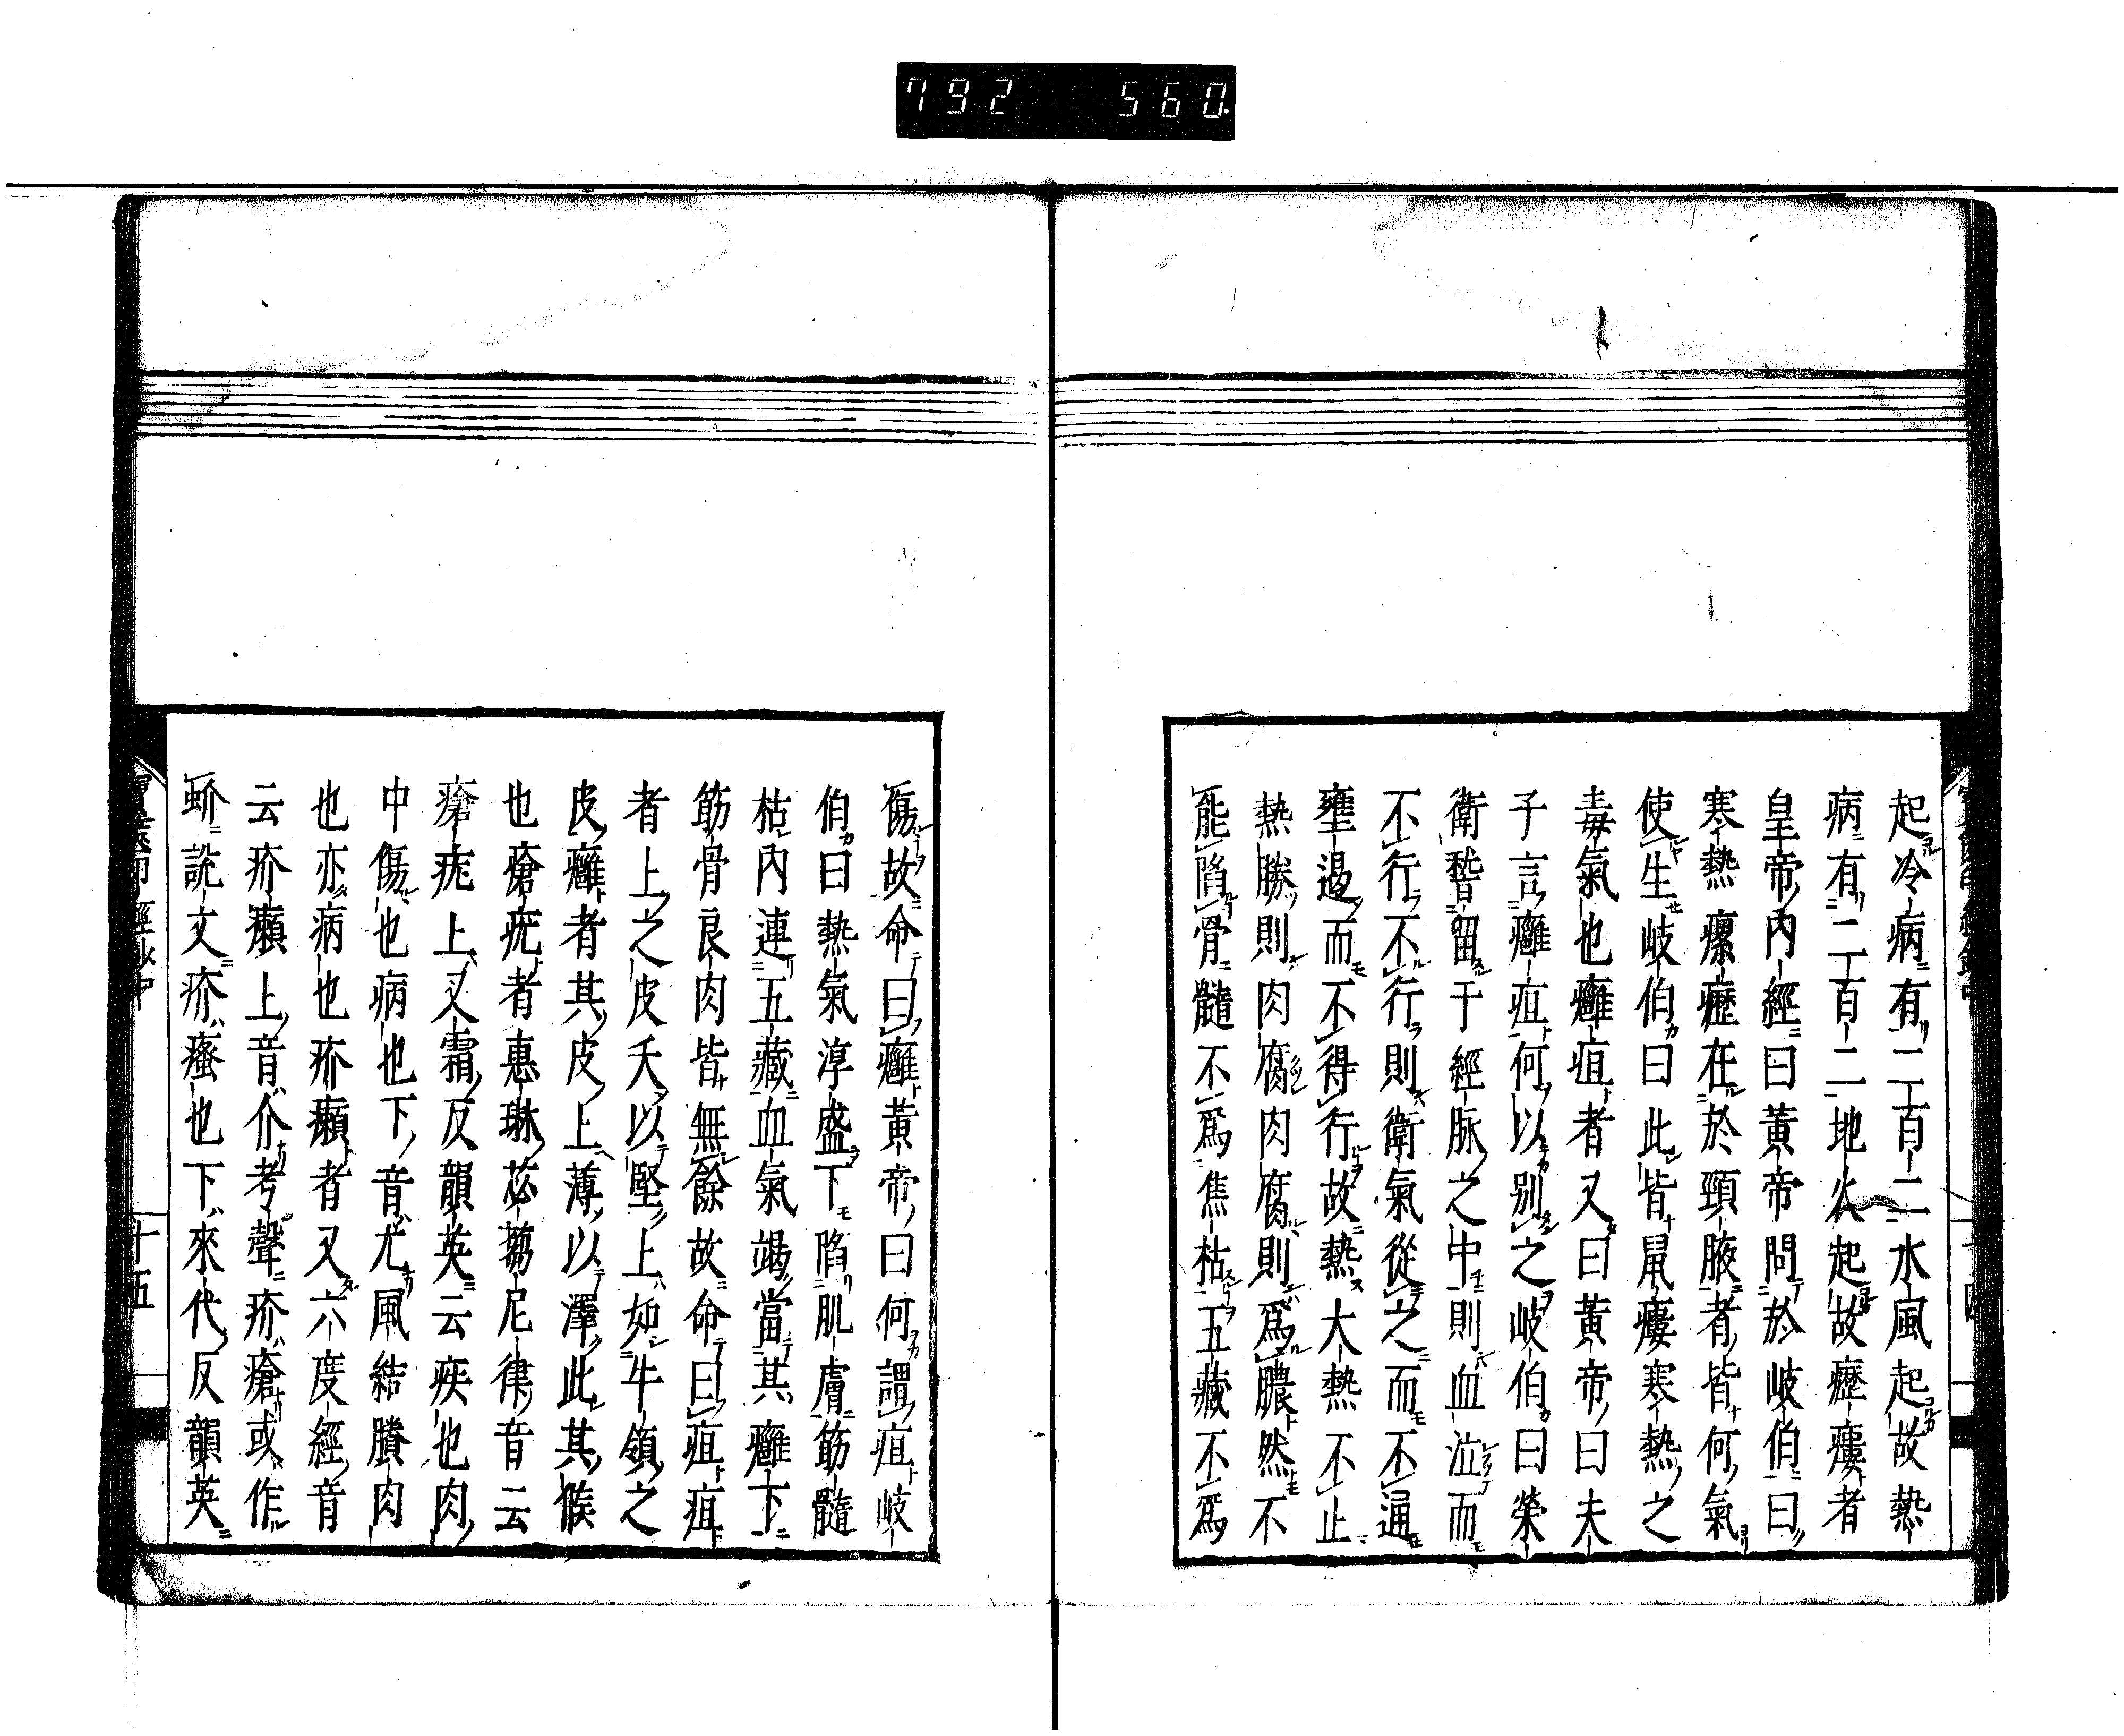 792 560
起冷病有二百二水風起故熱
病有二百二地火起故癧瘻者
皇帝內經曰黃帝問於岐伯曰
寒熱瘰癧在於頸腋者皆何氣
使生岐伯曰此皆鼠瘻寒熱之
毒氣也癰疽者又曰黃帝曰夫
子言癰疽何以別之岐伯曰榮
衛稽留于經脉之中則血泣而
不行不行則衛氣從之而不通
壅遏而不得行故熱大熱不止
熱勝則肉腐肉腐則爲膿然不
能陷骨髓不爲焦枯五藏不爲
傷故命曰癰黃帝曰何謂疽岐
伯曰熱氣淳盛下陷肌膚筋髓
枯內連五藏血氣竭當其癰下
筋骨良肉皆無餘故命曰疽疽
者上之皮夭以堅上如牛領之
皮癰者其皮上薄以澤此其候
也瘡疣者惠琳苾蒭尼律音云
瘡疣上又霜反韻英云疾也肉
中傷也病也下音尤風結賸肉
也亦病也疥癩者又六度經音
云疥癩上音介考聲疥瘡或作
蚧說文疥瘙也下來代反韻英
十五